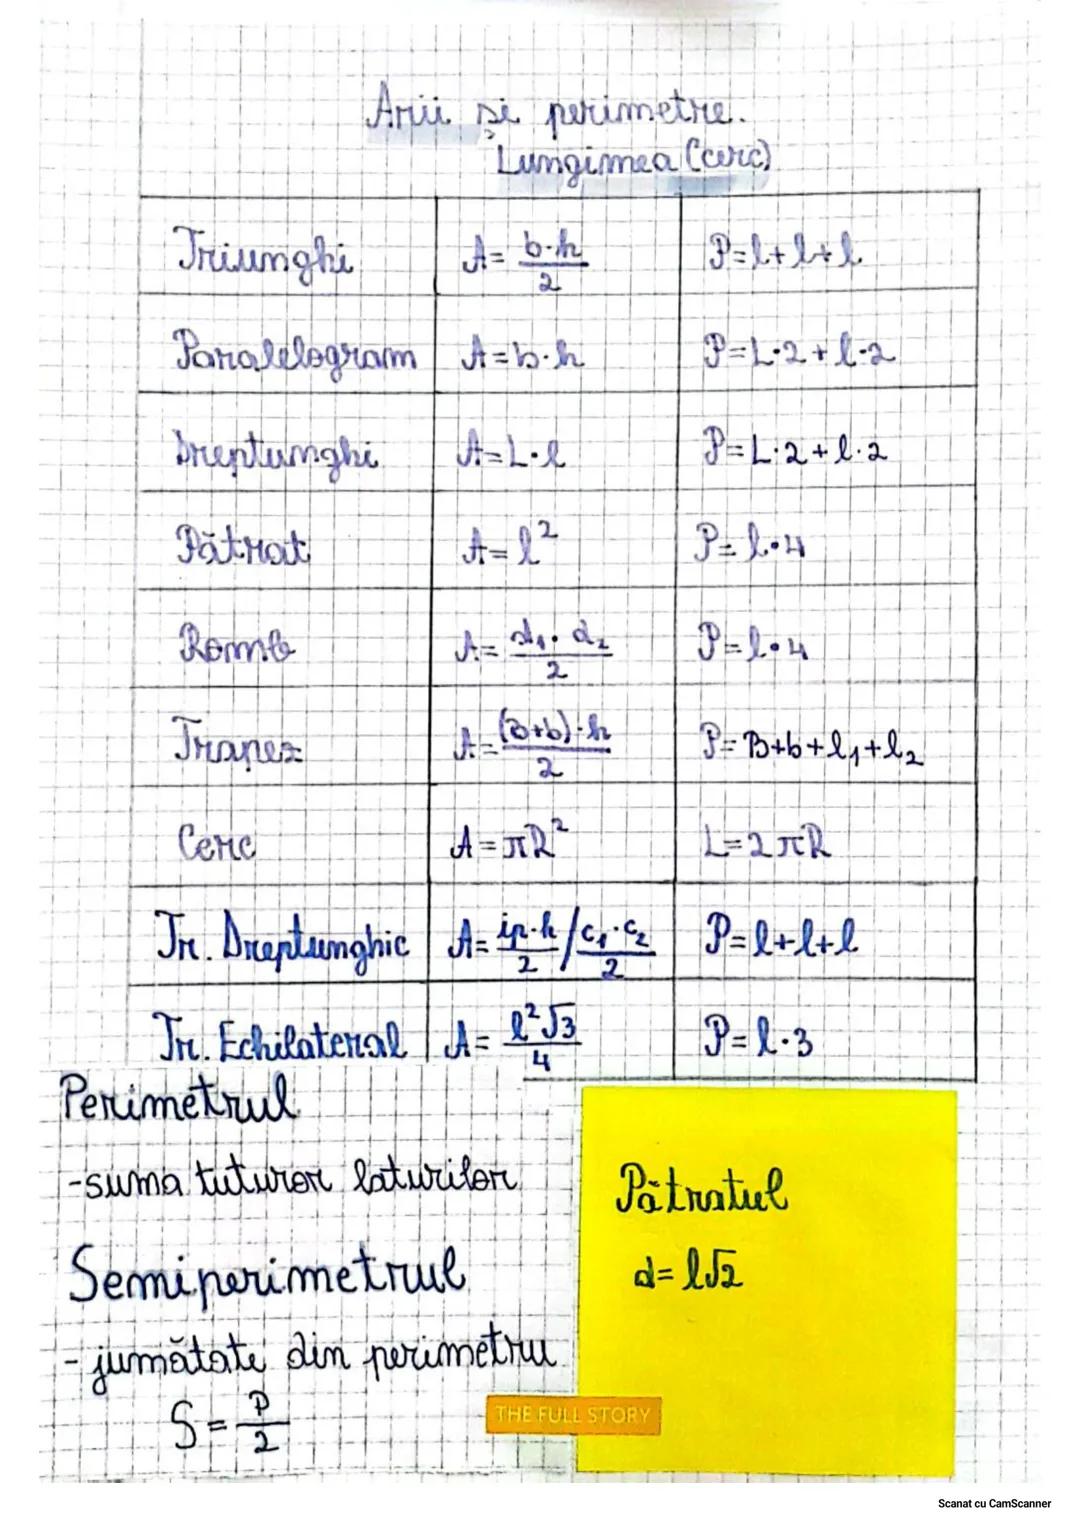 Arii și perimetre.
Lungimea (cerc)
Triunghi A= b·h/2 P=l+l+l
Paralelogram A=b·h P=L·2+l·2
Dreptunghi A=L·l P=L·2+l·2
Pătrat A=l² P=l·4
Romb A= d₁·d₂/2 P=l·4
Trapez A= (B+b)·h/2 P=B+b+l₁+l₂
Cerc A=πR² L=2πR
Tr. Dreptunghic A= ip·h/2 / c₁·c₂/2 P=l+l+l
Tr. Echilateral A= l²√3/4 P=l·3
Perimetrul
-suma tuturor laturilor
Semiperimetrul
-jumătate din perimetru
S=P/2
Pătratul
d=l√2
THE FULL STORY
Scanat cu CamScanner